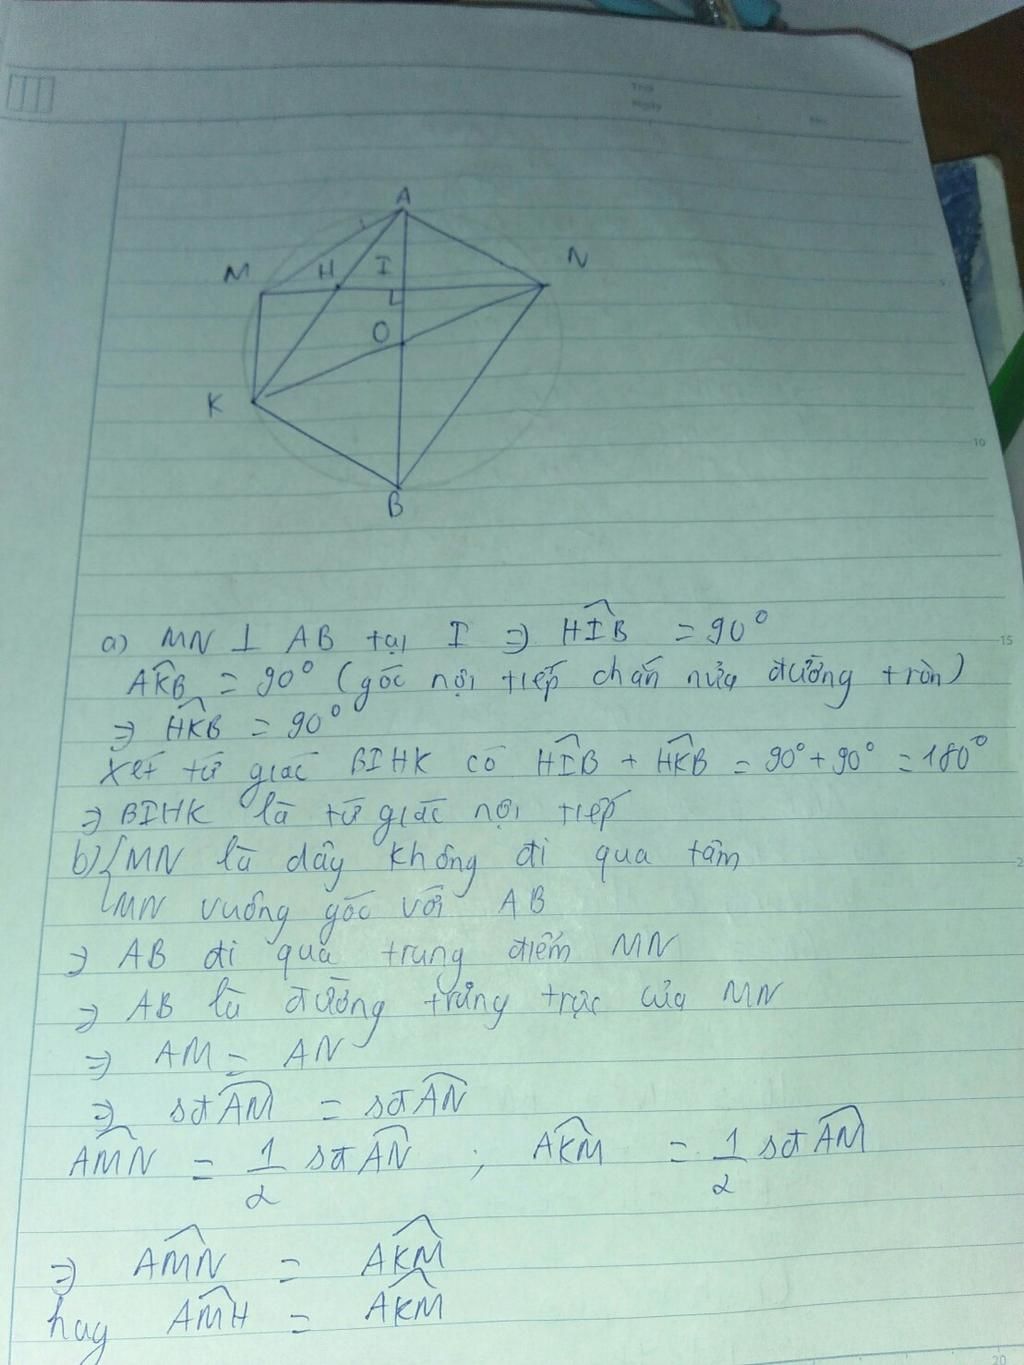 A
M H I N
O
K
B
a) MN ⊥ AB tại I ⇒ HÎB = 90°
AK̂B = 90° (góc nội tiếp chắn nửa đường tròn)
⇒ HK̂B = 90°
Xét tứ giác BIHK có HÎB + HK̂B = 90° + 90° = 180°
⇒ BIHK là tứ giác nội tiếp
b) { MN là dây không đi qua tâm
MN vuông góc với AB
⇒ AB đi qua trung điểm MN
⇒ AB là đường trung trực của MN
⇒ AM = AN
⇒ sđ AM̂ = sđ AN̂
AM̂N = 1/2 sđ AN̂ ; AK̂M = 1/2 sđ AM̂
⇒ AM̂N = AK̂M
hay AM̂H = AK̂M